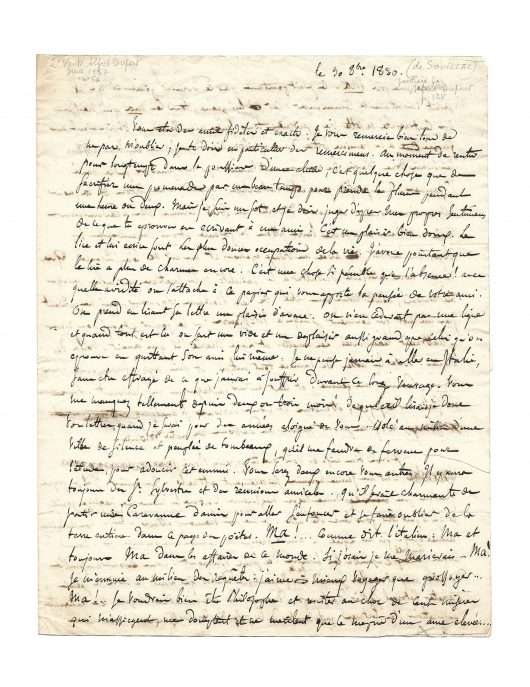 le 30 8bre 1830.
(de Sauvillac)
Vous êtes des amis fidèles et exacts. Je vous remercie bien tous de
ne pas m'oublier ; je te dois en particulier des remerciemens. Au moment de rentrer
pour longtemps dans la poussière d'une étude c'est quelque chose que de
sacrifier une promenade par un beau temps pour prendre la plume pendant
une heure ou deux. Mais je suis un sot et je dois juger d'après mes propres sentimens
de ce que tu éprouves en écrivant à un ami : C'est un plaisir bien doux. Le
lire et lui écrire sont les plus douces occupations de la vie. J'avoue pourtant que
le lire a plus de charmes encore. C'est une chose si pénible que l'absence ! avec
quelle avidité on s'attache à ce papier qui vous apporte la pensée de votre ami.
On prend en lisant sa lettre un plaisir d'avare. On vient
et quand tout est lu on sent un vide et un déplaisir aussi grand que celui qu'on
éprouve en quittant son ami lui même. Je ne puis jamais à aller en Italie,
sans être effrayé de ce que j'aurai à souffrir durant ce long voyage. Vous
me manquez tellement depuis deux ou trois mois
vos lettres quand je serai pour des années éloigné de vous. Isolé au milieu d'une
ville de silence et peuplée de tombeaux, qu'il me faudra de ferveur pour
l'étude pour adoucir cet ennui. Vous serez deux encore vous autres. Il y aura
toujours des St Sylvestre et des réunions amicales. Qu'il serait charmant de
partir une caravanne d'amis pour aller s'enfoncer et se faire oublier de la
terre entière dans le pays des poètes. Ma !... Comme dit l'italien : Ma et
toujours Ma dans les affaires de ce monde. Si j'osais je me marierais. Ma !
Je m'ennuie au milieu des requêtes : j'aimerais mieux voyager que grossoyer...
Ma... Je voudrais bien être Philosophe et rester au choc de cent misères
qui m'assiégent, me domptent et ne méritent que le mépris d'une âme élevée...